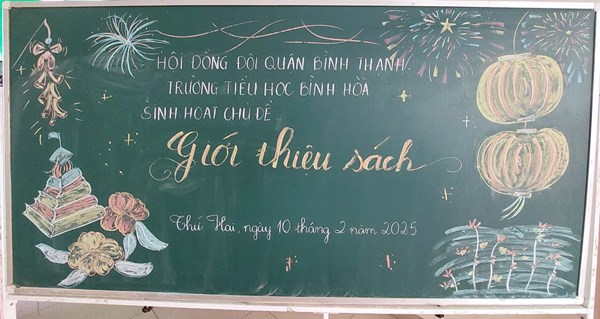 HỘI ĐỒNG ĐỘI QUẬN BÌNH THẠNH
TRƯỜNG TIỂU HỌC BÌNH HÒA
SINH HOẠT CHỦ ĐỀ
Giới thiệu sách
Thứ Hai, ngày 10 tháng 2 năm 2025